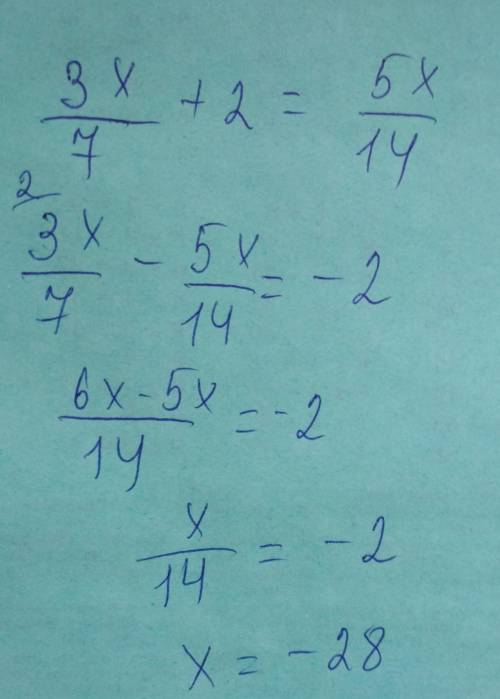 3x/7 + 2 = 5x/14
2
3x/7 - 5x/14 = -2
6x-5x/14 = -2
x/14 = -2
x = -28